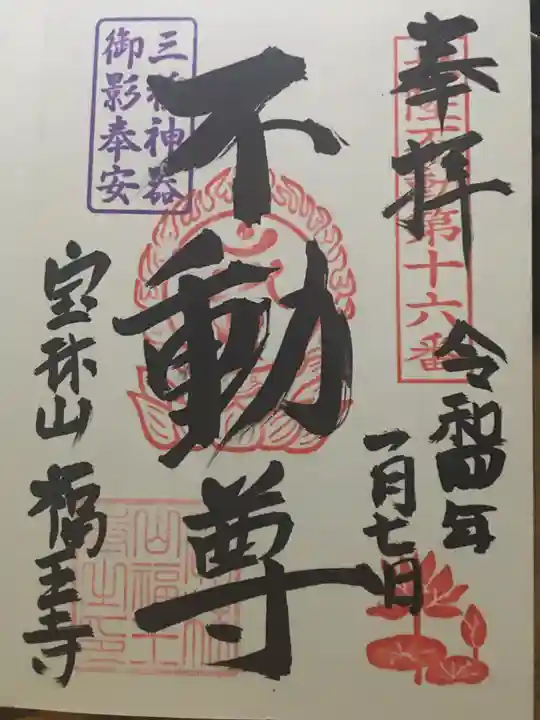 奉拝
北陸不動第十六番
令和四年
一月七日
不動尊
三種神器
御影奉安
宝珠山 福王寺